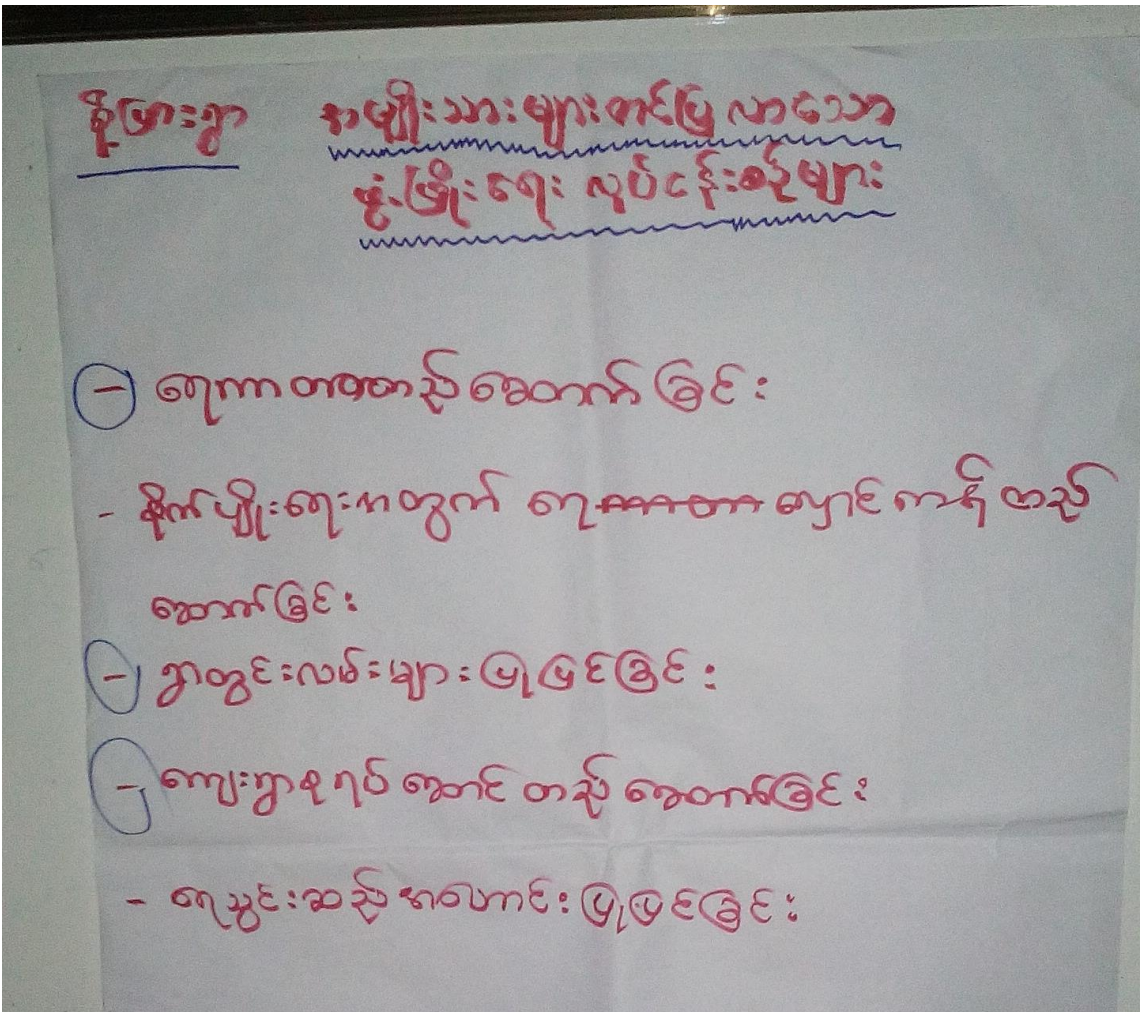 စို့ဖြားရွာ အမျိုးသားများတင်ပြလာသော
ဖွံ့ဖြိုးရေး လုပ်ငန်းစဉ်များ
- ရေကာတာတည်ဆောက်ခြင်း
- စိုက်ပျိုးရေးအတွက် ရေလှောင်ကန် တည်
ဆောက်ခြင်း
- ရွာတွင်းလမ်းများ ပြုပြင်ခြင်း
- ကျေးရွာစုရပ် ဆောင် တည် ဆောက်ခြင်း
- ရေသွင်းဆည် အဟောင်း ပြုပြင်ခြင်း